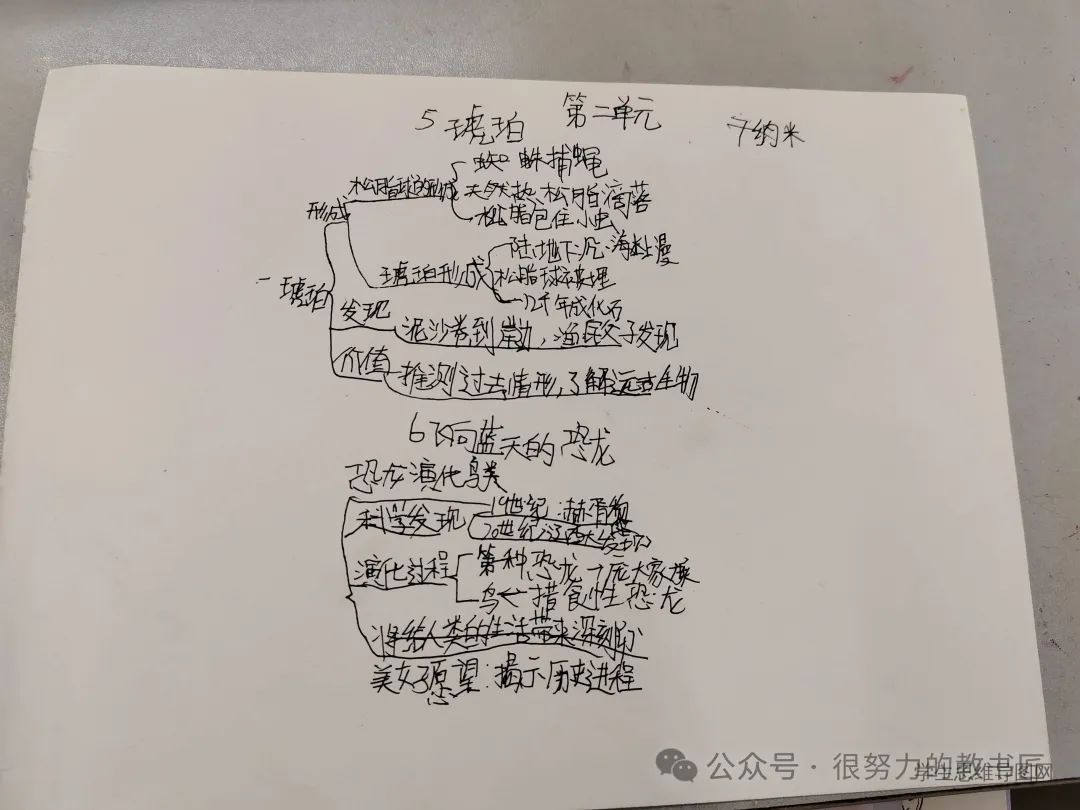 第二单元
5 琥珀
7纳米
松脂球的形成
蜘蛛捕蝇
天然热 松脂滴落
松脂包住小虫
形成
琥珀形成
陆地下沉 海水上漫
松脂球被埋
几千年成化石
琥珀
发现
泥沙卷到岸边,渔民父子发现
价值
推测过去情形,了解远古生物
6 飞向蓝天的恐龙
恐龙演化鸟类
科学发现
19世纪:赫胥黎
20世纪:辽西大发现
演化过程
第种恐龙→庞大家族
鸟← 措食性恐龙
将给人类的生活带来深刻
美好愿望:揭示历史进程
公众号·很努力的教书匠
学生思维导图网